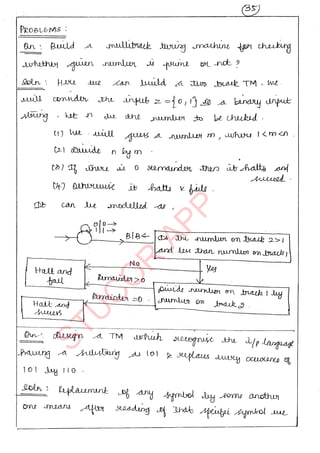 (35)
PROBLEMS :
Qn : Build a multitrack turing machine for checking
whether given number is prime or not ?
Soln : Here we can build a two track TM. We
will consider the input Σ = {0, 1} as a binary input
string. Let n be the number to be checked.
(1) We will guess a number m, where 1<m<n.
(2) divide n by m.
(3) If there is 0 remainder then it halts and
succeed.
(4) Otherwise it halts & fails.
It can be modelled as .
0|0→
1|1→
B|B←
Is the number on track 2>1
and less than number on track 1
No
Yes
Halt and
fail
Remainder>0
Divide number on track 1 by
number on track 2
Remainder=0
Halt and
success
STUCOR APP
Qn : design a TM which recognise the i/p language
having a substring as 101 & replaces every occurence of
101 by 110.
Soln : Replacement of any symbol by some another
one means after reading of that specific symbol we